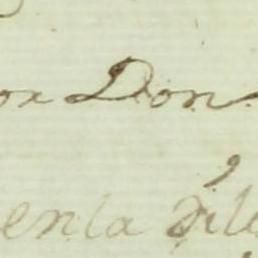 or Don
enla